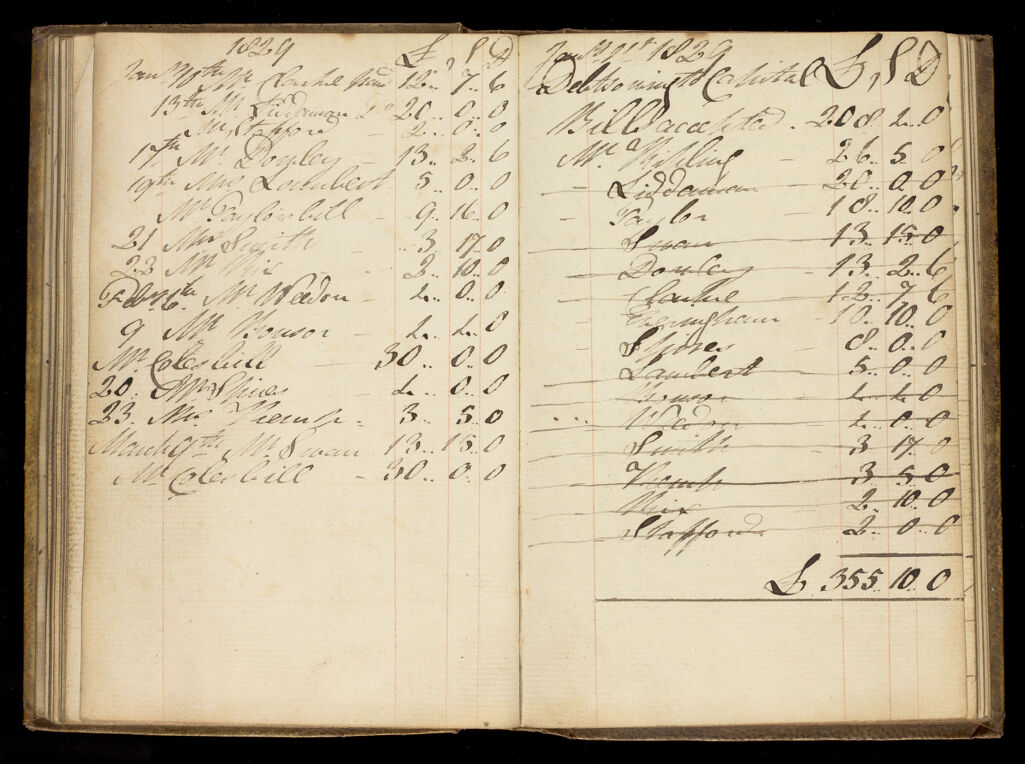 1829 £ S D
Jany 10th Mr Clarke paid 12.. 7.. 6
13th Mr Liddaman 20.. 0.. 0
Mr Stafford 2.. 0.. 0
17th Mr Dowley – 13.. 2.. 6
19th Mrs Lambert 5.. 0.. 0
Mr Taylor bill – 9.. 16.. 0
21 Mr Smith .. 3.. 17.. 0
22 Mr Nix – 2.. 10.. 0
Feb 6th Mr Weedon – 4.. 0.. 0
9 Mr Bonsor – 4.. 4.. 0
Mr Coles bill – 30.. 0.. 0
20. Mr Spires 4.. 0.. 0
23. Mr Kemp – 3.. 5.. 0
March 9th Mr Swan 13.. 15.. 0
Mr Coles bill – 30.. 0.. 0
Jany 1st 1829 £, S D
Debts owing to Capital
Bills accepted . 208.. 4.. 0
Mr Kipling – 26.. 5.. 0
– Liddaman – 20.. 0.. 0
– Taylor – 18.. 10.. 0
Swan 13.. 15.. 0
– Dowley – 13.. 2.. 6
– Clarke – 12.. 7.. 6
– Everingham – 10.. 10.. 0
– Spires 8.. 0.. 0
– Lambert 5.. 0.. 0
– Bonsor – 4.. 4.. 0
Weedon 4.. 0.. 0
– Smith – 3.. 17.. 0
– Kemp – 3.. 5.. 0
– Nix – 2.. 10.. 0
– Stafford – 2.. 0.. 0
£ 355.. 10.. 0